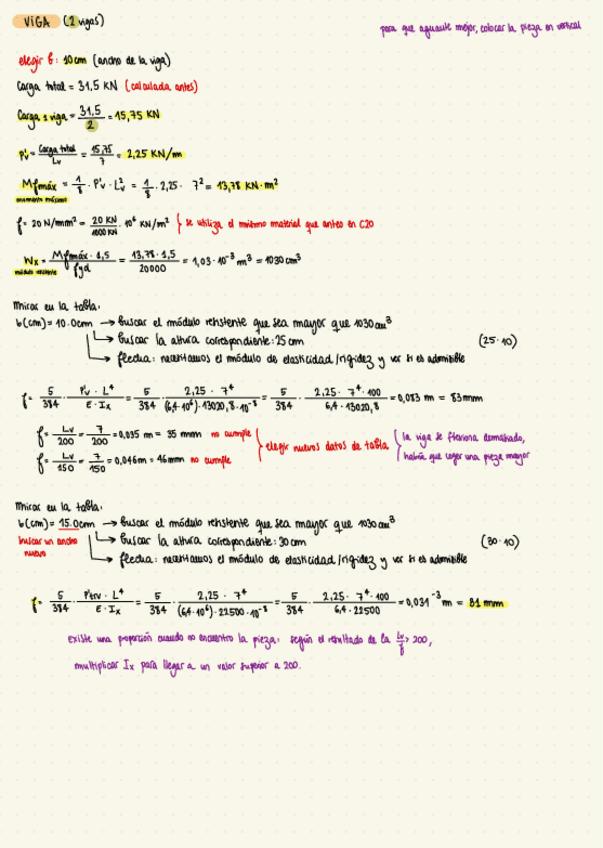 VIGA (2 vigas)
para que aguante mejor, colocar la pieza en vertical
elegir b: 10cm (ancho de la viga)
Carga total = 31,5 KN (calculada antes)
Carga 1 viga = 31,5 / 2 = 15,75 KN
P'v = Carga total / Lv = 15,75 / 7 = 2,25 KN/m
Mfmáx = 1/8 · P'v · L²v = 1/8 · 2,25 · 7² = 13,78 KN·m²
momento máximo
f = 20 N/mm² = 20 KN / 1000 KN · 10⁶ KN/m² } se utiliza el mismo material que antes en C20
Wx = Mfmáx · 1,5 / fyd = 13,78 · 1,5 / 20000 = 1,03 · 10⁻³ m³ = 1030 cm³
módulo resistente
mirar en la tabla:
b(cm) = 10.0cm → buscar el módulo resistente que sea mayor que 1030 cm³
→ buscar la altura correspondiente: 25 cm (25·10)
→ flecha: necesitamos el módulo de elasticidad/rigidez y ver si es admisible
f = 5/384 · P'v · L⁴ / E · Ix = 5/384 · 2,25 · 7⁴ / (6,4·10⁶)·13020,8·10⁻⁸ = 5/384 · 2,25 · 7⁴ · 100 / 6,4 · 13020,8 = 0,083 m = 83mm
f = Lv/200 = 7/200 = 0,035 m = 35 mm no cumple
f = Lv/150 = 7/150 = 0,046m = 46mm no cumple
} elegir nuevos datos de tabla
{ la viga se flexiona demasiado,
habría que coger una pieza mayor
mirar en la tabla:
b(cm) = 15.0cm → buscar el módulo resistente que sea mayor que 1030 cm³
buscar un ancho nuevo
→ buscar la altura correspondiente: 30 cm (30·10)
→ flecha: necesitamos el módulo de elasticidad/rigidez y ver si es admisible
f = 5/384 · P'trv · L⁴ / E · Ix = 5/384 · 2,25 · 7⁴ / (6,4·10⁶)·22500·10⁻⁸ = 5/384 · 2,25 · 7⁴ · 100 / 6,4 · 22500 = 0,031⁻³ m = 31 mm
Existe una proporción cuando no encuentro la pieza: según el resultado de la Lv/f > 200,
multiplicar Ix para llegar a un valor superior a 200.